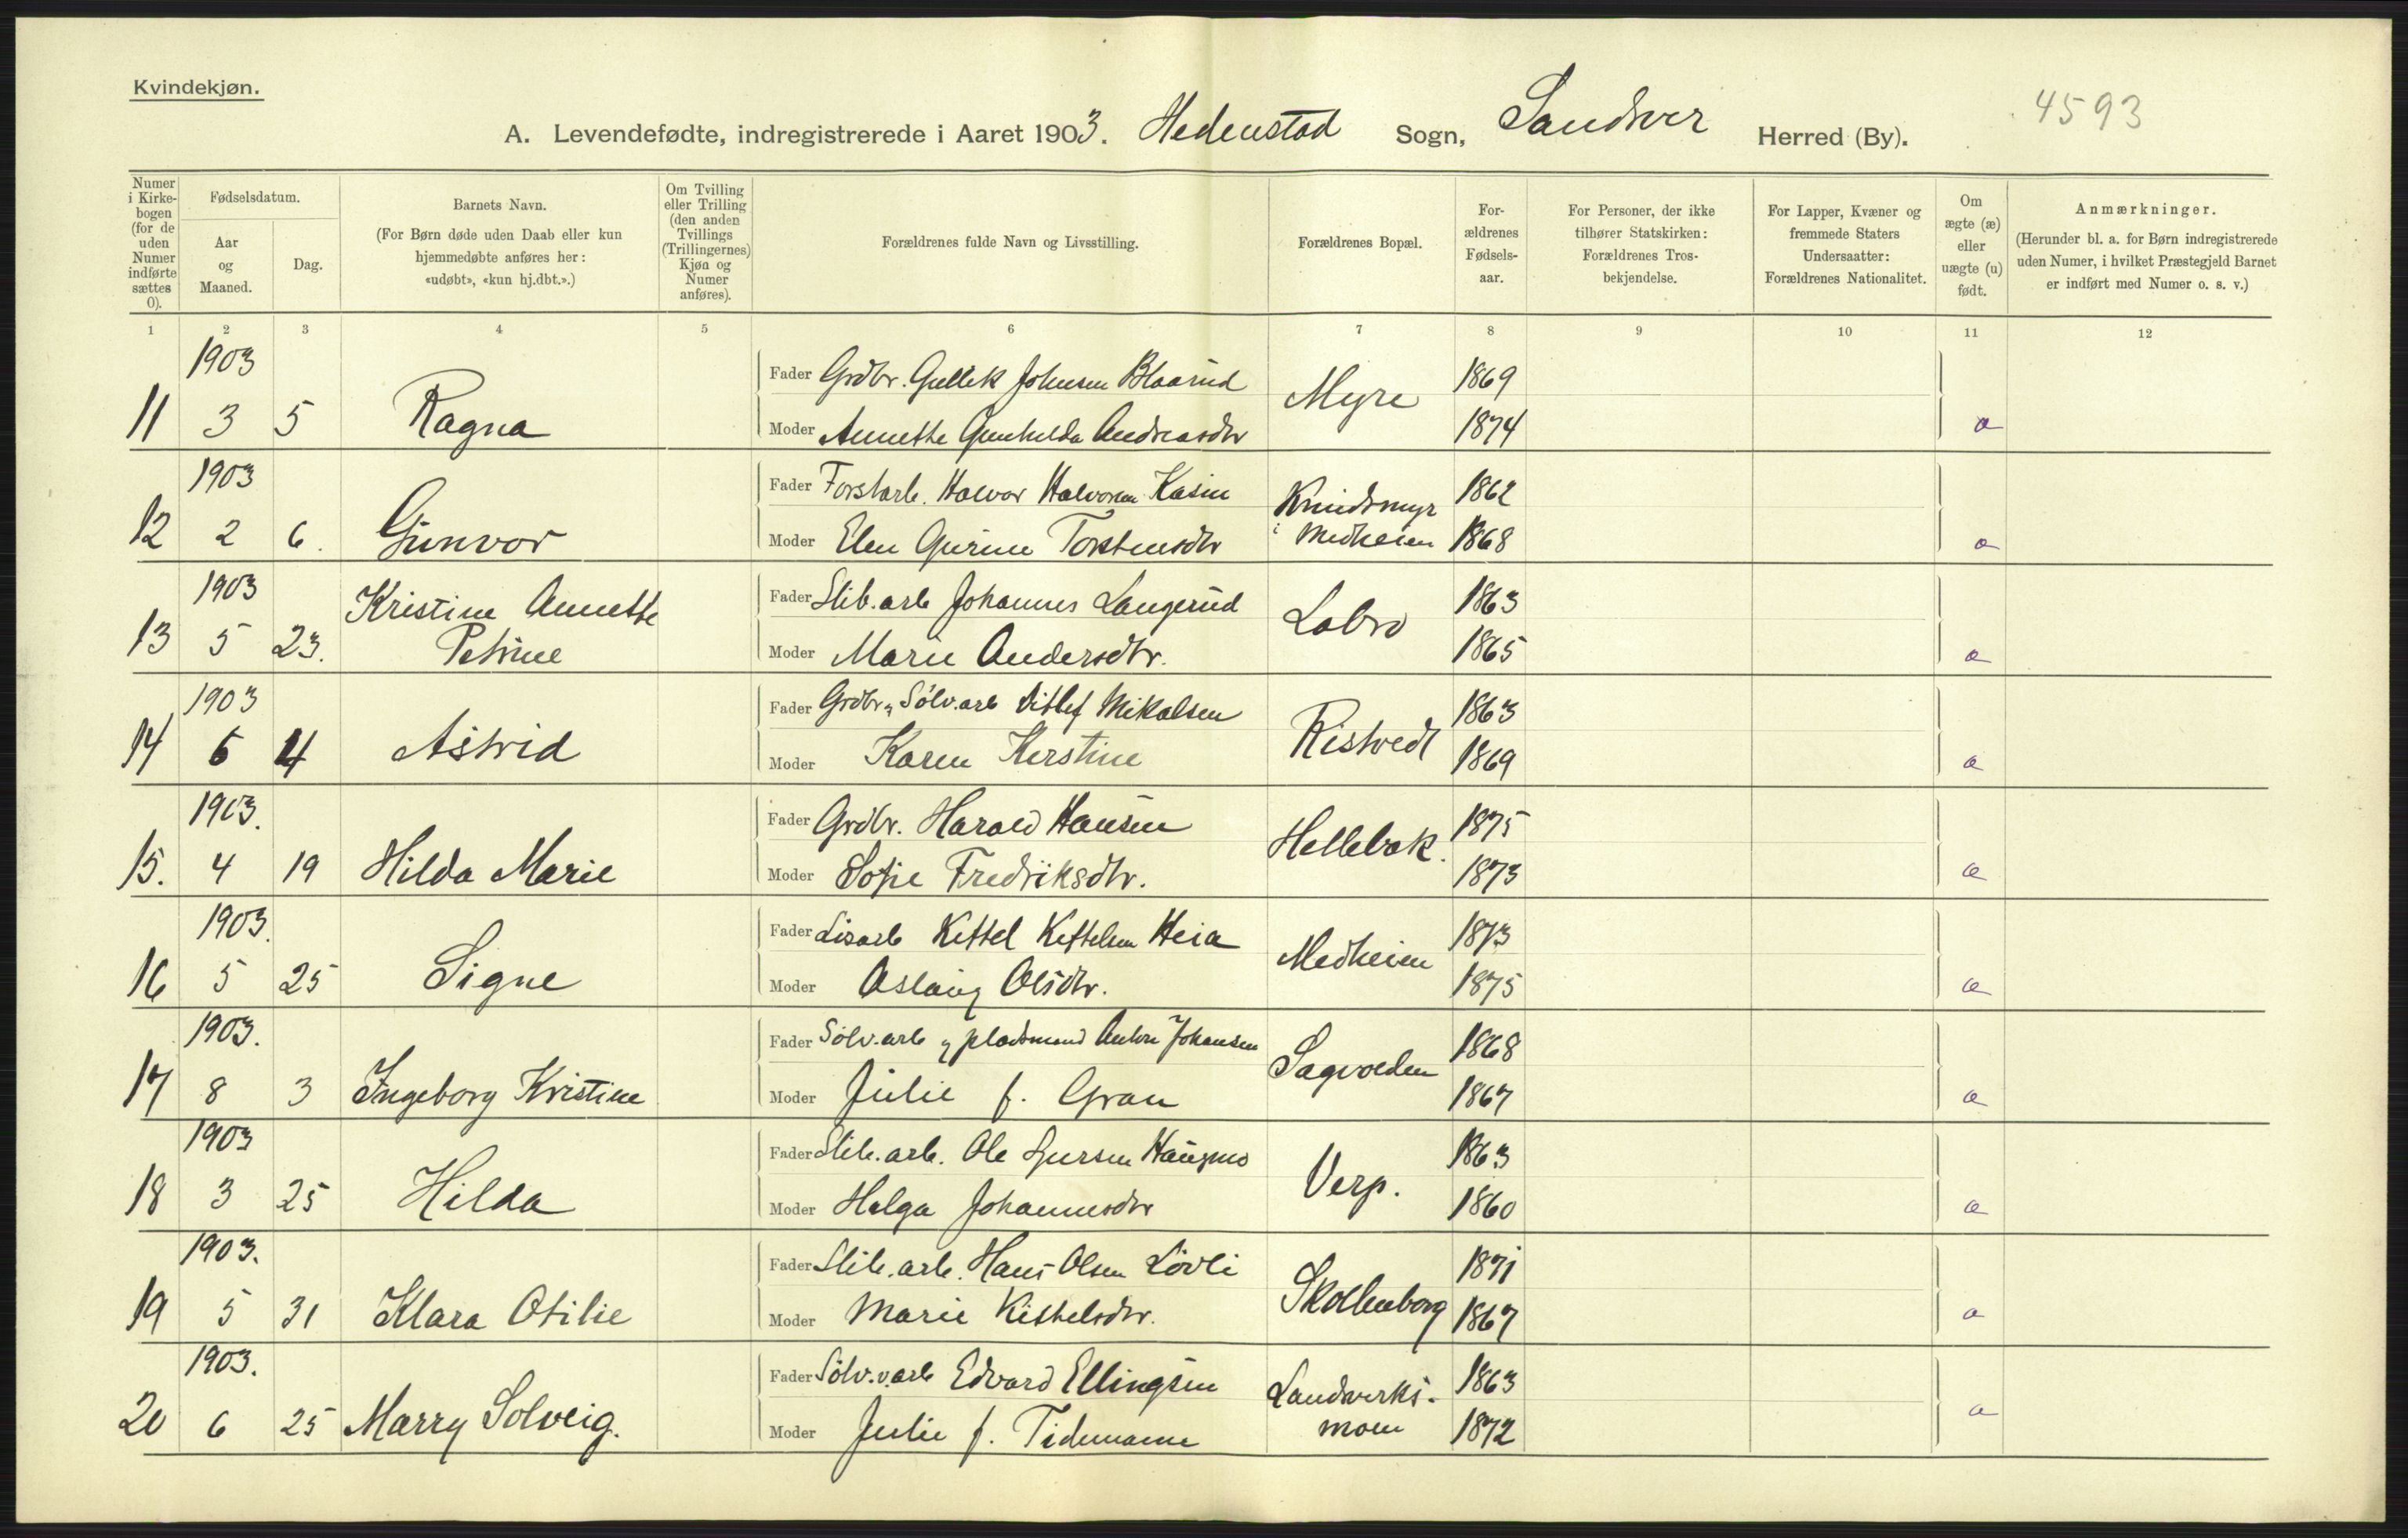 Kvindekjøn.
4593
A. Levendefødte, indregistrerede i Aaret 1903. Hedenstad Sogn, Sandsver Herred (By).
Numer i Kirkebogen (for de uden Numer indførte sættes 0).
Fødselsdatum.
Aar og Maaned.
Dag.
Barnets Navn.
(For Børn døde uden Daab eller kun
hjemmedøbte anføres her:
«udøbt», «kun hj.dbt.».)
Om Tvilling eller Trilling (den anden Tvillings (Trillingernes) Kjøn og Numer anføres).
Forældrenes fulde Navn og Livsstilling.
Forældrenes Bopæl.
For-ældrenes Fødsels-aar.
For Personer, der ikke
tilhører Statskirken:
Forældrenes Tros-
bekjendelse.
For Lapper, Kvæner og
fremmede Staters
Undersaatter:
Forældrenes Nationalitet.
Om ægte (æ) eller uægte (u) født.
Anmærkninger.
(Herunder bl. a. for Børn indregistrerede
uden Numer, i hvilket Præstegjeld Barnet
er indført med Numer o. s. v.)
1 2 3 4 5 6 7 8 9 10 11 12
1903
Fader Grdbr. Gullik Johnsen Blaarud Myre 1869
11 3 5 Ragna
Moder Annette Gunhilda Andreasdtr 1874 æ
1903
Fader Forstarb. Halvor Halvorsen Kasin Knudsmyr 1862
12 2 6. Gunvor
Moder Elen Gurine Torstensdtr i Medheien 1868 æ
1903
Kristine Annette
Fader Slib.arb Johannes Langerud Labro 1863
13 5 23. Petrine
Moder Marie Andersdtr. 1865 æ
1903
Fader Grdbr og Sølv.arb Ditlef Mikalsen Ristvedt 1863
14 6 4 Astrid
Moder Karen Kerstine 1869 æ
1903.
Fader Grdbr. Harald Hansen Hellebæk. 1875
15. 4 19 Hilda Marie
Moder Sofie Fredriksdtr. 1873 æ
1903.
Fader Kittel Kittelsen Heia Medheien 1873
16 5 25 Signe
Moder Aslaug Olsdtr. 1875 æ
1903.
Fader Sølv.arb og pladsmand Anton Johansen Sagvolden 1868
17 8 3 Ingeborg Kristine
Moder Julie f. Gran 1867 æ
1903
Fader Slib.arb. Ole Haugmo Verp. 1863
18 3 25 Hilda
Moder Helga Johannesdtr 1860 æ
1903.
Fader Slib.arb. Hans Olsen Løvli Skollenborg 1871
19 5 31 Klara Otilie
Moder Marie Kittelsdtr. 1867 æ
1903.
Fader Sølv.v.arb Edvard Ellingsen Landverks- 1863
20 6 25 Marry Solveig.
Moder Julie f. Tidemann moen 1872 æ